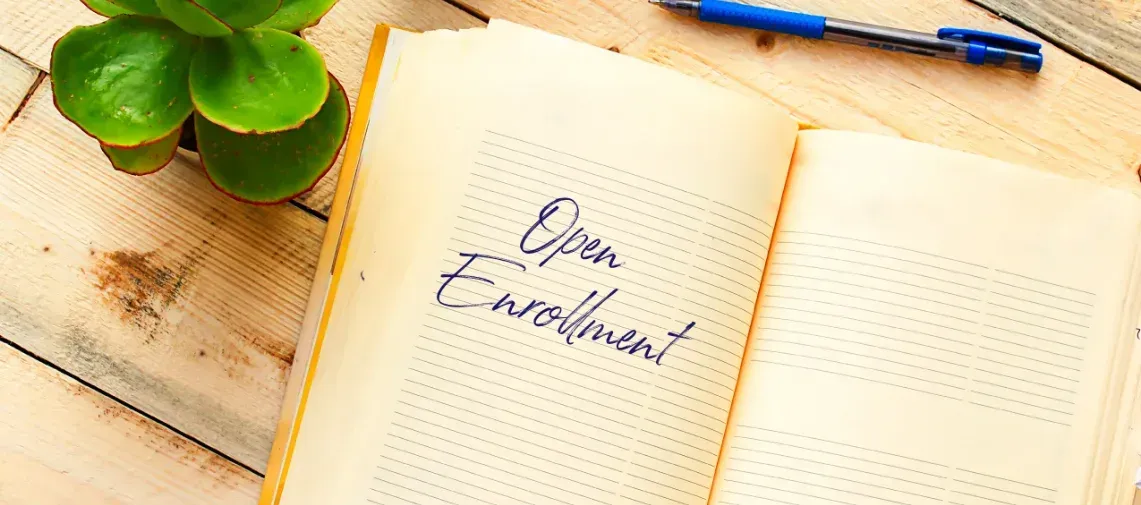 Open
Enrollment